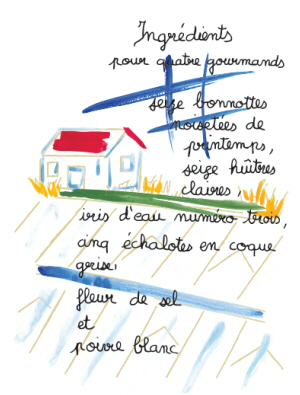 Ingrédients
pour quatre gourmands
seize bonnottes
noisetées de
printemps,
seize huîtres
claires,
iris d'eau numéro trois,
cinq échalotes en coque
grise,
fleur de sel
et
poivre blanc